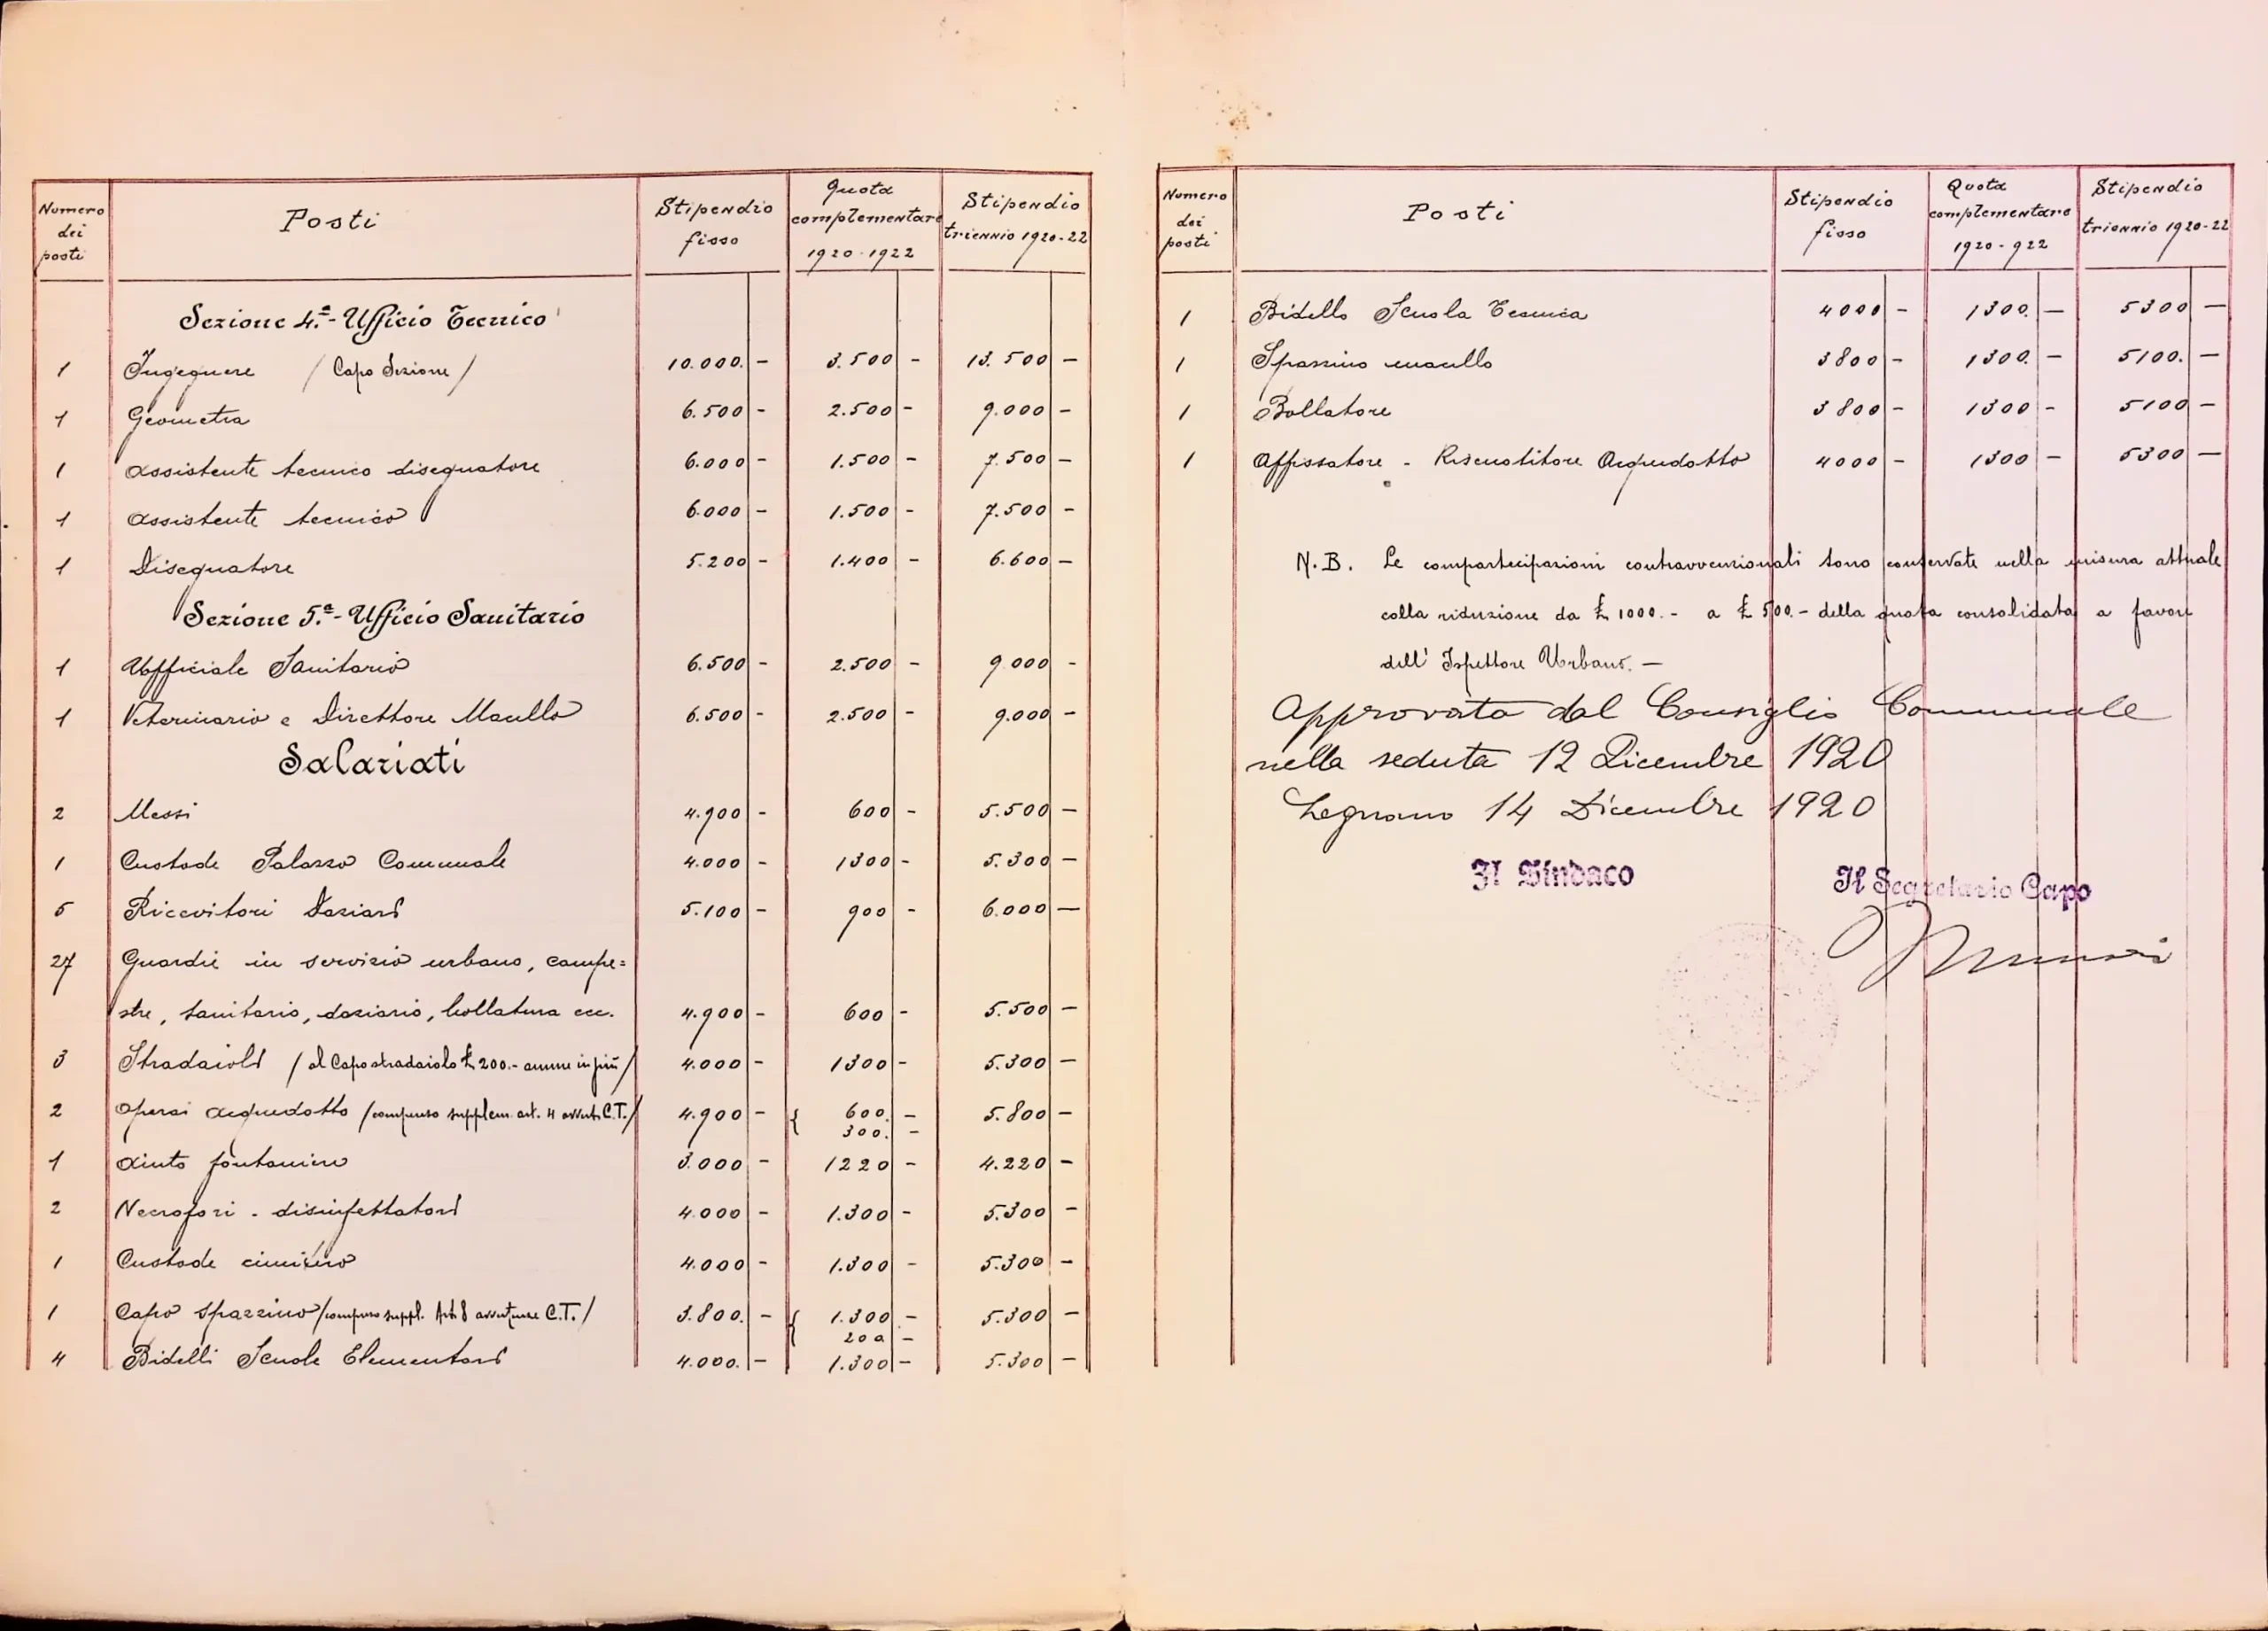 Numero dei posti | Posti | Stipendio fisso | Quota complementare 1920-1922 | Stipendio triennio 1920-22
Sezione 4.ª - Ufficio Tecnico
1 Ingegnere / Capo Sezione / 10.000. - 3.500 - 13.500 -
1 Geometra 6.500 - 2.500 - 9.000 -
1 Assistente tecnico disegnatore 6.000 - 1.500 - 7.500 -
1 Assistente tecnico 6.000 - 1.500 - 7.500 -
1 Disegnatore 5.200 - 1.400 - 6.600 -
Sezione 5.ª - Ufficio Sanitario
1 Ufficiale Sanitario 6.500 - 2.500 - 9.000 -
1 Veterinario e Direttore Macello 6.500 - 2.500 - 9.000 -
Salariati
2 Messi 4.900 - 600 - 5.500 -
1 Custode Palazzo Comunale 4.000 - 1300 - 5.300 -
5 Ricevitori Daziari 5.100 - 900 - 6.000 -
27 Guardie in servizio urbano, campe=
stre, sanitario, daziario, bollatura ecc. 4.900 - 600 - 5.500 -
3 Stradaioli / al Capo stradaiolo £ 200.- annue in più / 4.000 - 1300 - 5.300 -
2 Operai acquedotto / compenso supplem. art. 4 avvert. C.T. / 4.900 - { 600. - 5.800 -
300. -
1 Aiuto fontaniere 3.000 - 1220 - 4.220 -
2 Necrofori - disinfettatori 4.000 - 1.300 - 5.300 -
1 Custode cimitero 4.000 - 1.300 - 5.300 -
1 Capo spazzino / compenso suppl. Art. 8 avvertenze C.T. / 3.800. - { 1.300 - 5.300 -
200 -
4 Bidelli Scuole Elementari 4.000. - 1.300 - 5.300 -
Numero dei posti | Posti | Stipendio fisso | Quota complementare 1920-922 | Stipendio triennio 1920-22
1 Bidello Scuola Tecnica 4000 - 1300. - 5300 -
1 Spazzino macello 3800 - 1300. - 5100. -
1 Bollatore 3800 - 1300 - 5100 -
1 Affissatore - Riscuotitore Acquedotto 4000 - 1300 - 5300 -
N.B. Le compartecipazioni contravvenzionali sono conservate nella misura attuale
colla riduzione da £ 1000.- a £ 500.- della quota consolidata a favore
dell' Ispettore Urbano. -
Approvata dal Consiglio Comunale
nella seduta 12 Dicembre 1920
Legnano 14 Dicembre 1920
Il Sindaco
Il Segretario Capo